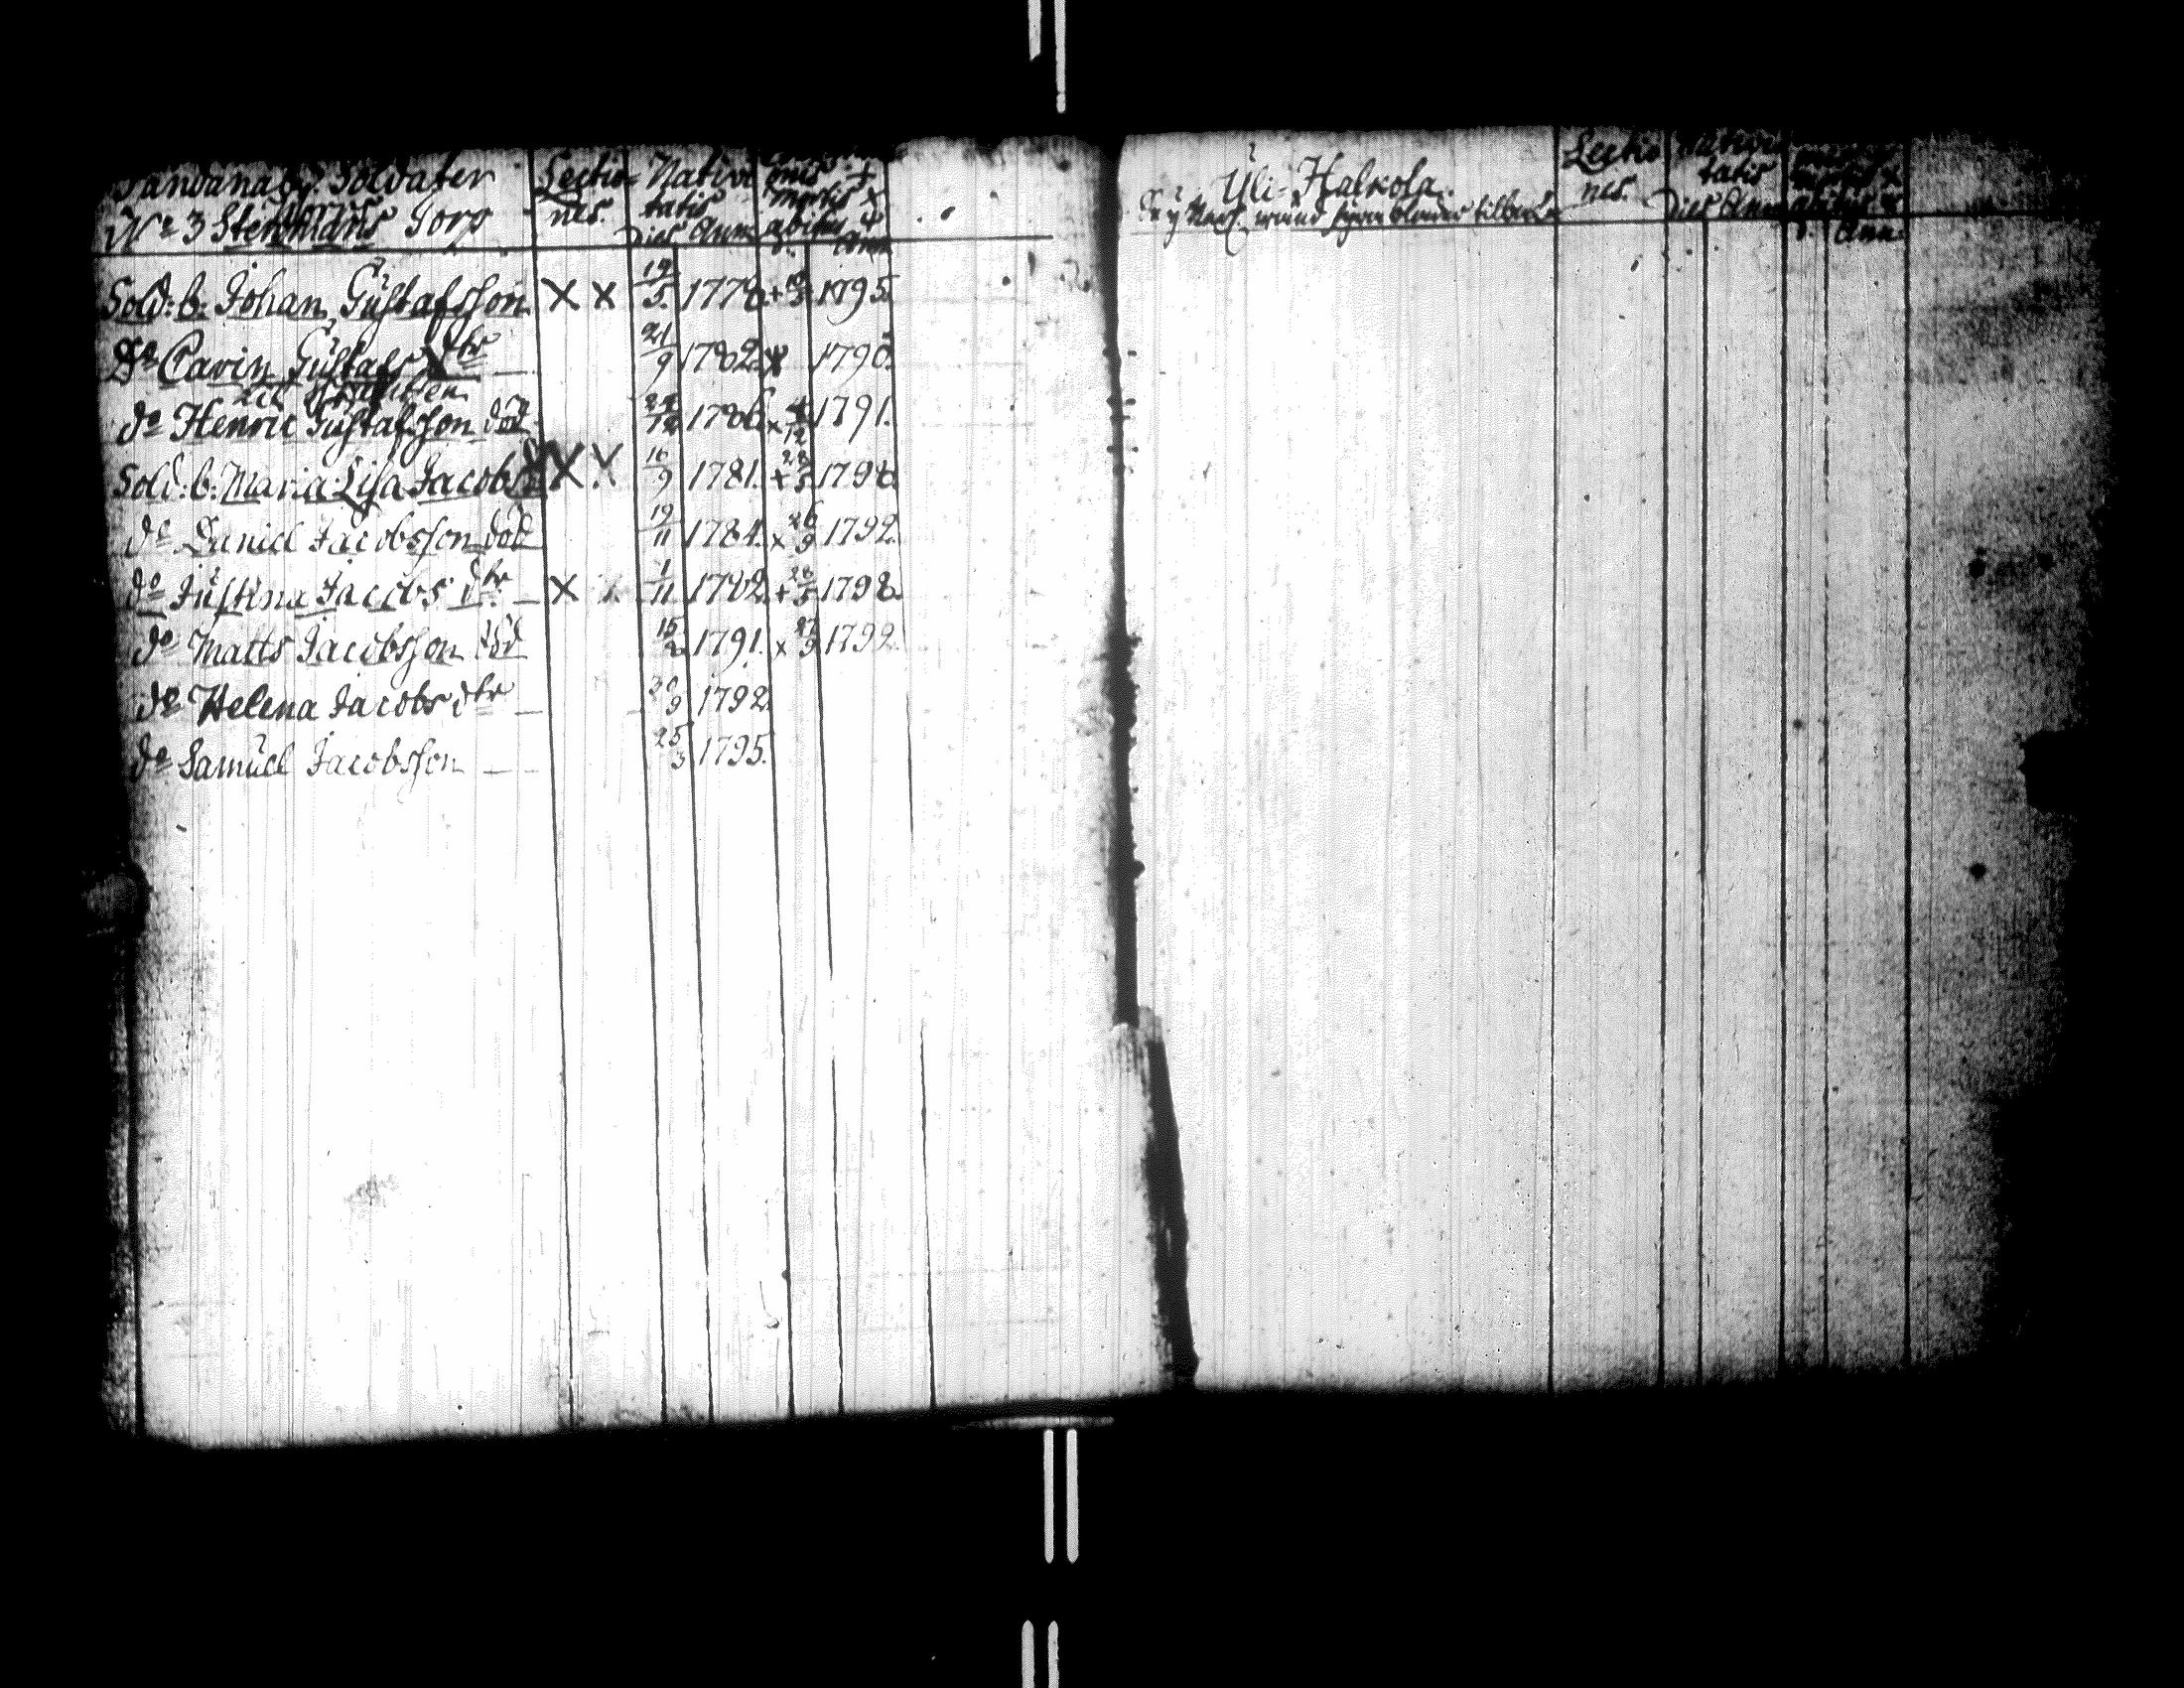 Soldater
N:o 3 Stenmans Torp
Lectio-
nes.
Nativi
tatis
Dies Anni
mortis x
abitus
Sold: b: Johan Gustafsson X x 19/5. 177 + 1795.
D:o Carin Gustafs dtr 21/9 1782. 1790.
d:o Henric Gustafsson död 24/12 1786. x 4/12 1791.
Sold: b: Maria Lisa Jacobs X X 16/9 1781. + 28/5 1798.
d:o Daniel Jacobsson död 19/11 1784. x 26/9 1792.
d:o Justina Jacobs dtr X 1/11 + 28/5 1798.
d:o Matts Jacobsson död 15/ 1791. x 27/9 1792.
d:o Helena Jacobs dtr 9 1792.
d:o Samuel Jacobsson 25/3 1795.
Uli-Halkola.
fyra blader tillbaka
Lectio
nes.
Nativi
tatis
Dies Anni
Anni